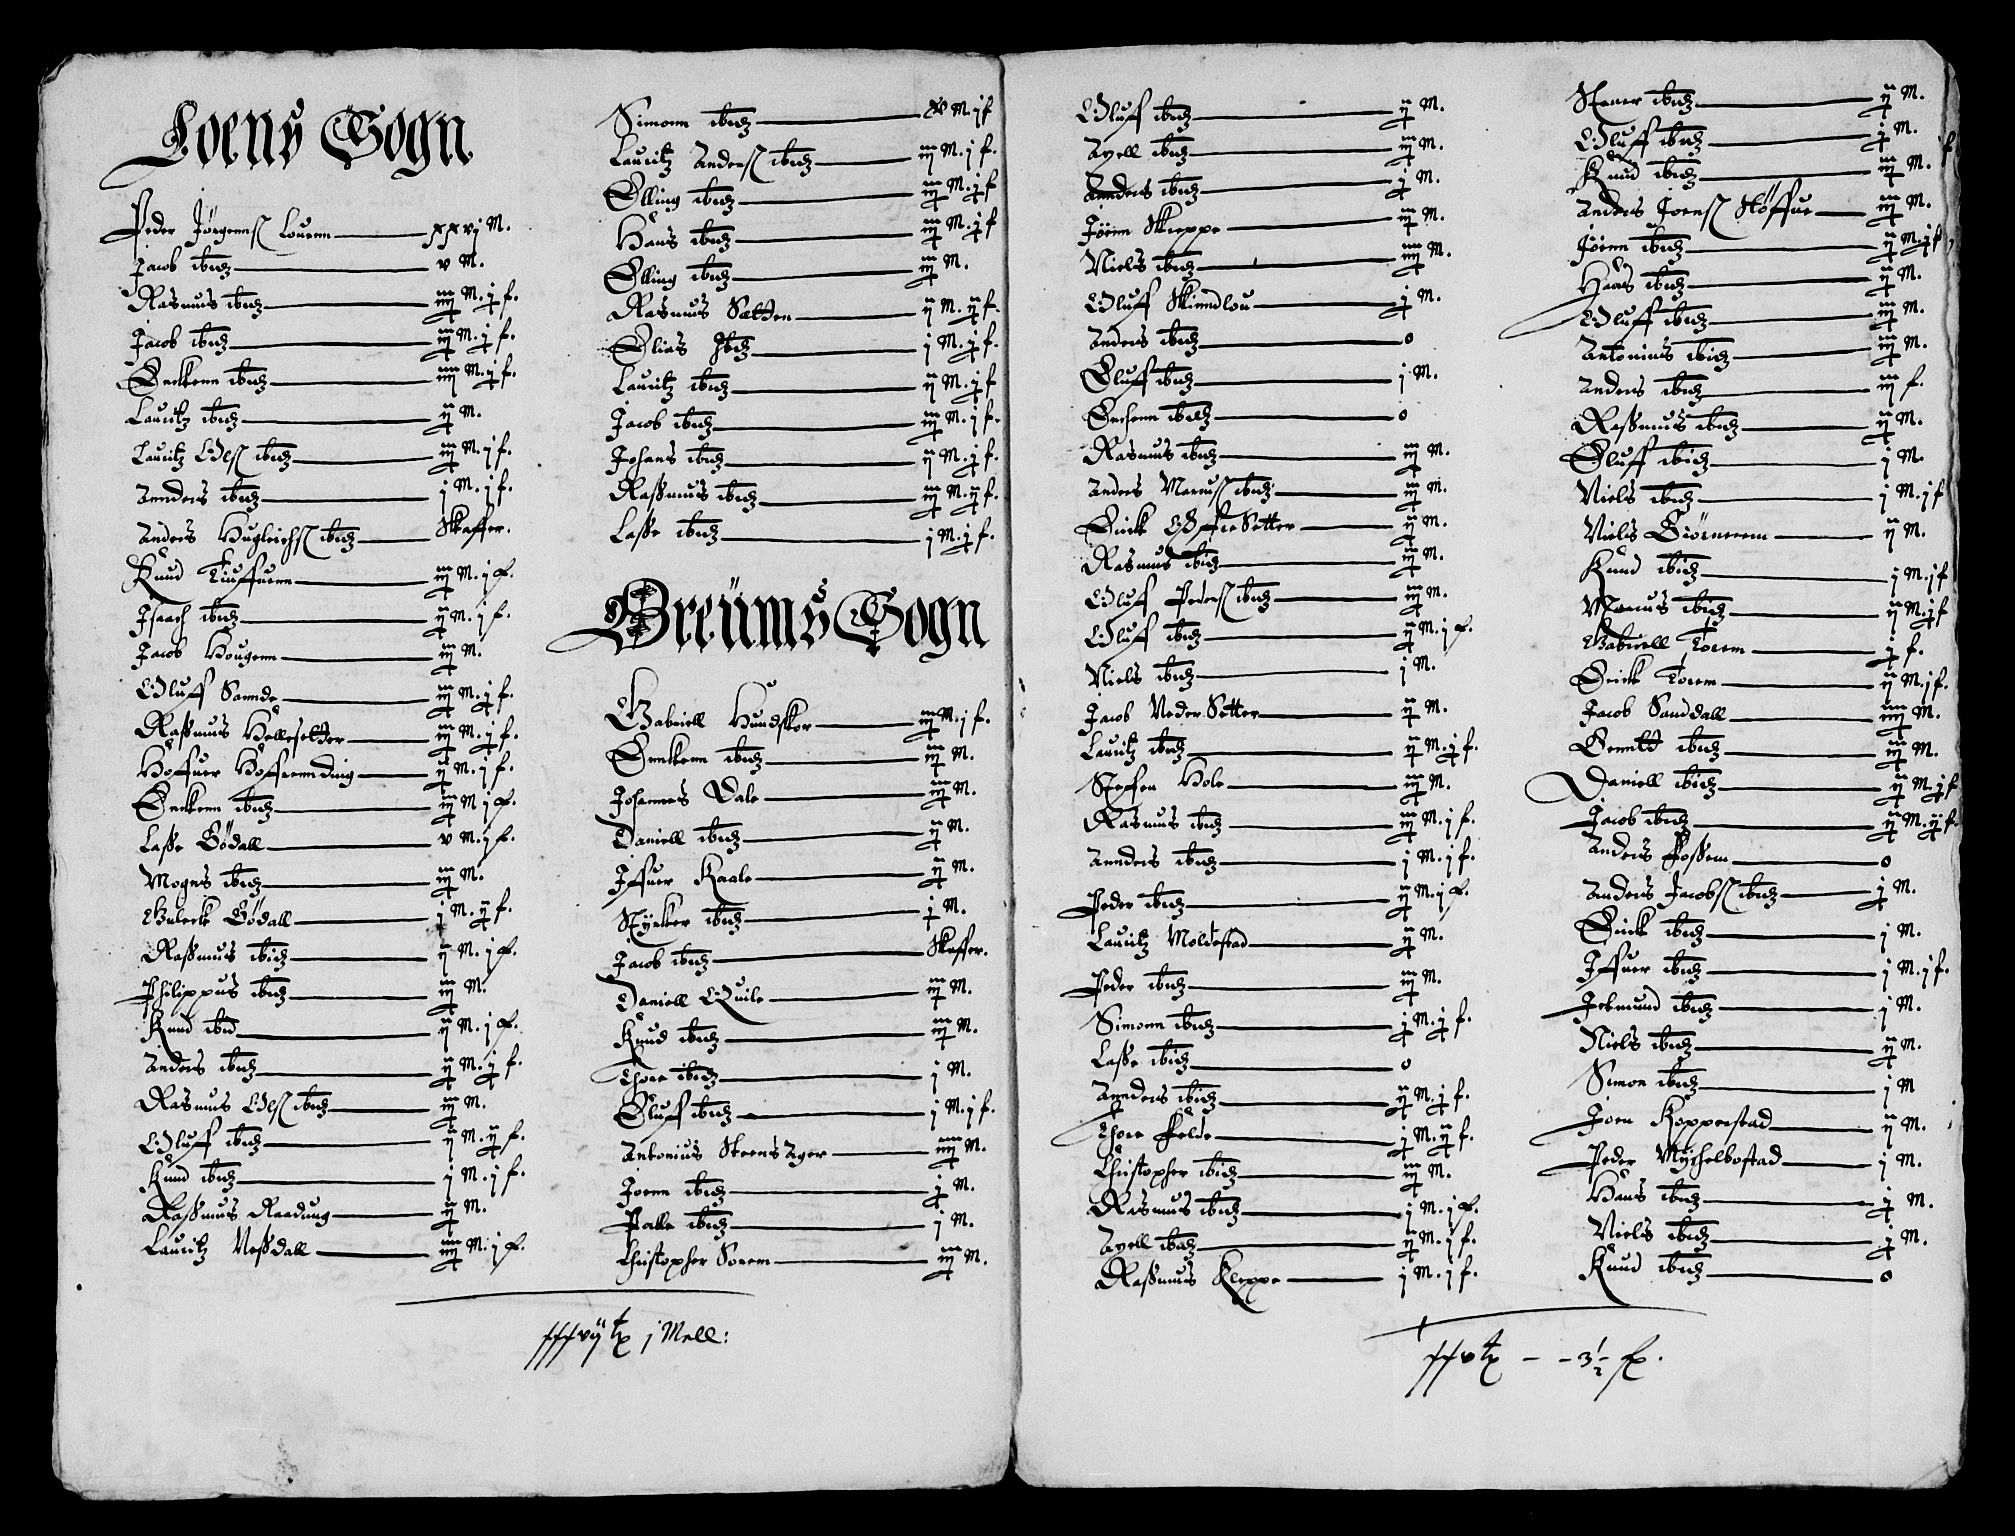 Loens Sogn
Peder Jörgenns Louenn xxvj M.
Jacob ibidz v M.
Rasmus ibidz iiij M. j f.
Jacob ibidz iij M. j f.
Enckenn ibidz iiij M. j f.
Lauritz ibidz ij M.
Lauritz Oels ibidz iij M. j f.
Annders ibidz j M. j f.
Anders Hugleichs ibidz Skaffer.
Knud Tiuffuenn iij M. j f.
Isaach ibidz ij M. j f.
Jacob Hougenn iij M.
Oluff Sannde iij M. j f.
Rassmus Hellesetter iij M. j f.
Hoffuer Hoffrennding ij M. j f.
Enckenn ibidz iij M j f.
Lasse Bödall v M. j f.
Mogns ibidz iij M.
Guleck Bödall j M. ij f.
Rassmus ibidz ij M. j f.
Philippus ibidz iij M.
Knud ibid ij M. j f.
Anders ibidz ij M. j f.
Rasmus Oels ibidz iij M.
Oluff ibidz ij M. ij f.
Knud ibidz j M. j f.
Rassmus Raadung ij M.
Lauritz Nessdall iiij M. j f.
Simonn ibidz xv M. j f
Lauritz Anders ibidz iij M. j f.
Elling ibidz iij M. j f
Hans ibidz iij M. j f
Elling ibidz iij M.
Rasmus Sætten ij M. ij f.
Elias Ibidz j M. j f.
Lauritz ibidz ij M. j f
Jacob ibidz iij M. j f.
Johans ibidz ij M. j f.
Rassmus ibidz iij M. ij f.
Lasse ibidz j M. j f.
Breüms Sogn
Gabriell Hundskor iij M. j f.
Enckenn ibidz iij M.
Johannes Dale iij M.
Daniell ibidz ij M.
Iffuer Kaale ij M.
Stÿrker ibidz j M.
Jacob ibidz Skaffer.
Daniell Quile iij M.
Knud ibidz iij M.
Thore ibidz j M.
Oluff ibidz j M. j f.
Antonius SteensAger iiij M.
Joenn ibidz j M.
Palle ibidz j M.
Christopher Sorem iij M.
xxxvij tx j Mell:
Oluff ibidz ij M.
Axell ibidz iij M.
Annders ibidz j M.
Jöenn Skreppe iij M.
Niels ibidz iiij M.
Oluff Skinndlou j M.
Anders ibidz 0
Eluff ibidz j M.
Enchenn ibidz 0
Rasmus ibidz iij M.
Anders Marcus ibidz iij M.
Erick Øffre Setter ij M.
Rasmus ibidz iij M.
Oluff Peders ibidz iij M.
Oluff ibidz ij M. j f.
Niels ibidz j M.
Jacob Neder Setter ij M.
Lauritz ibidz ij M. j f.
Steffen Hole iij M.
Rasmus ibidz iij M. j f.
Annders ibidz j M. j f.
Peder ibidz ij M. j f.
Lauritz Moldestad ij M.
Peder ibidz iij M.
Simonn ibidz j M. j f.
Lasse ibidz 0
Annders ibidz ij M. j f.
Thore Felde j M. ij f.
Christopher ibidz iij M.
Rasmus ibidz j M. j f.
Axell ibidz ij M. j f.
Rassmus Kleppe j M. j f.
Stener ibidz ij M.
Oluff ibidz j M.
Knud ibidz iij M.
Anders Joens Støffue iij M.
Jöenn ibidz ij M. j f
Haas ibidz ij M.
Oluff ibidz iij M.
Antonius ibidz iij M.
Anders ibidz iij f.
Rassmus ibidz ij M.
Eluff ibidz j M.
Niels ibidz j M. j f
Niels Giörnerem ij M.
Knud ibidz j M. j f
Marcus ibidz ij M. j f
Gabriell Torem j f.
Erick Torem ij M. j f.
Jacob Sanddall iiij M.
Benditt ibidz iij M.
Daniell ibidz ij M. j f
Jacob ibidz ij M. ij f.
Anders Fossem 0
Anders Jacobs ibidz j M.
Erick ibidz j M.
Iffuer ibidz j M. j f.
Jetmund ibidz j M.
Niels ibidz ij M.
Simon ibidz j M
Joen Kopperstad ij M.
Peder Mÿchelbostad j M.
Hans ibidz j M.
Niels ibidz j M.
Knud ibidz 0
xxv tx - - 3 1/2 - fx.